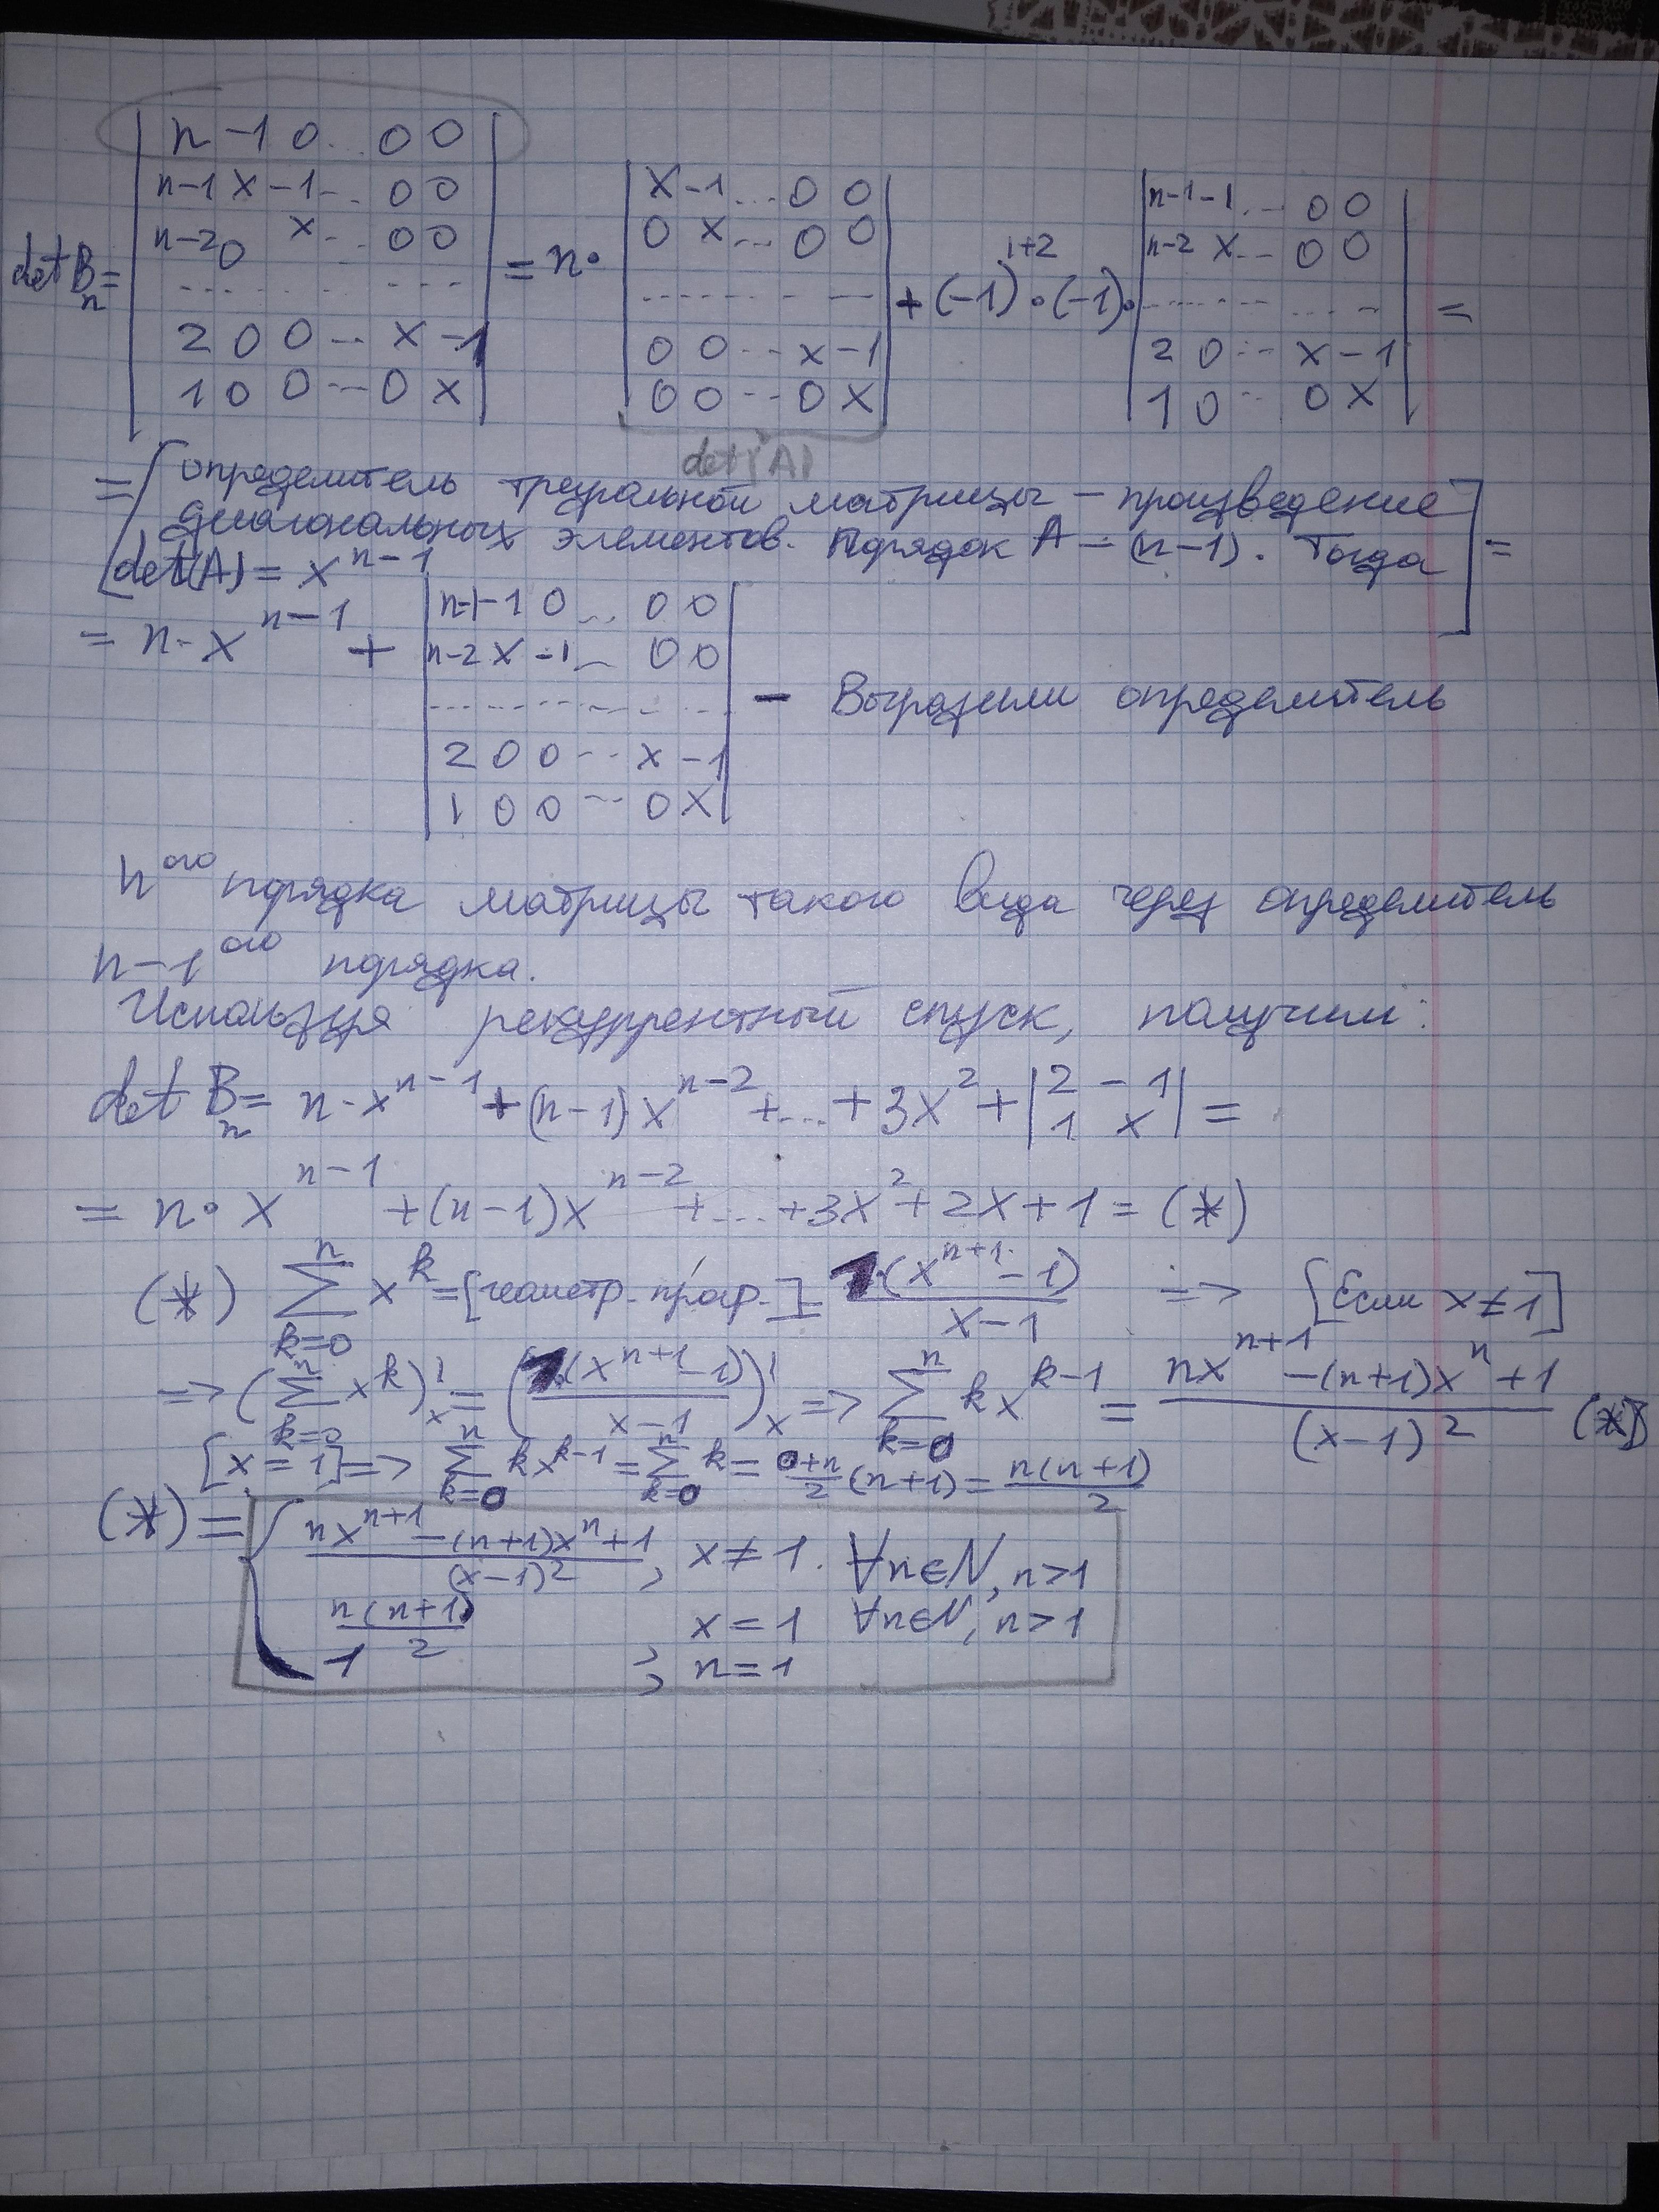 det Bₙ = | n -1 0 ... 0 0 | = n· | x -1 ... 0 0 | + (-1)^{1+2}·(-1)· | n-1 -1 ... 0 0 | =
| n-1 x -1 ... 0 0 | | 0 x ... 0 0 | | n-2 x ... 0 0 |
| n-2 0 x ... 0 0 | | ... | | ... |
| ... | | 0 0 ... x -1 | | 2 0 ... x -1 |
| 2 0 0 ... x -1 | | 0 0 ... 0 x | | 1 0 ... 0 x |
| 1 0 0 ... 0 x |
det(A)
= [определитель треугальной матрицы – произведение
диагональных элементов. Порядок A – (n-1). Тогда
det(A) = x^{n-1}] =
= n·x^{n-1} + | n-1 -1 0 ... 0 0 | – Выразили определитель
| n-2 x -1 ... 0 0 |
| ... |
| 2 0 0 ... x -1 |
| 1 0 0 ... 0 x |
n^{ого} порядка матрицы такого вида через определитель
n-1^{ого} порядка.
Используя рекуррентный спуск, получим:
det Bₙ = n·x^{n-1} + (n-1)x^{n-2} + ... + 3x² + | 2 -1 | =
| 1 x |
= n·x^{n-1} + (n-1)x^{n-2} + ... + 3x² + 2x + 1 = (*)
(*) ∑_{k=0}^{n} x^k = [геометр. прогр.] = 1·(x^{n+1} - 1)/(x-1) => [Если x ≠ 1]
=> (∑_{k=0}^{n} x^k)'_x = (1·(x^{n+1} - 1)/(x-1))'_x => ∑_{k=0}^{n} kx^{k-1} = (nx^{n+1} - (n+1)x^n + 1)/(x-1)² (*)
[x = 1] => ∑_{k=0}^{n} kx^{k-1} = ∑_{k=0}^{n} k = (0+n)/2 (n+1) = n(n+1)/2
(*) = { (nx^{n+1} - (n+1)x^n + 1)/(x-1)², x ≠ 1. ∀n∈N, n>1
n(n+1)/2, x = 1 ∀n∈N, n>1
1, n = 1